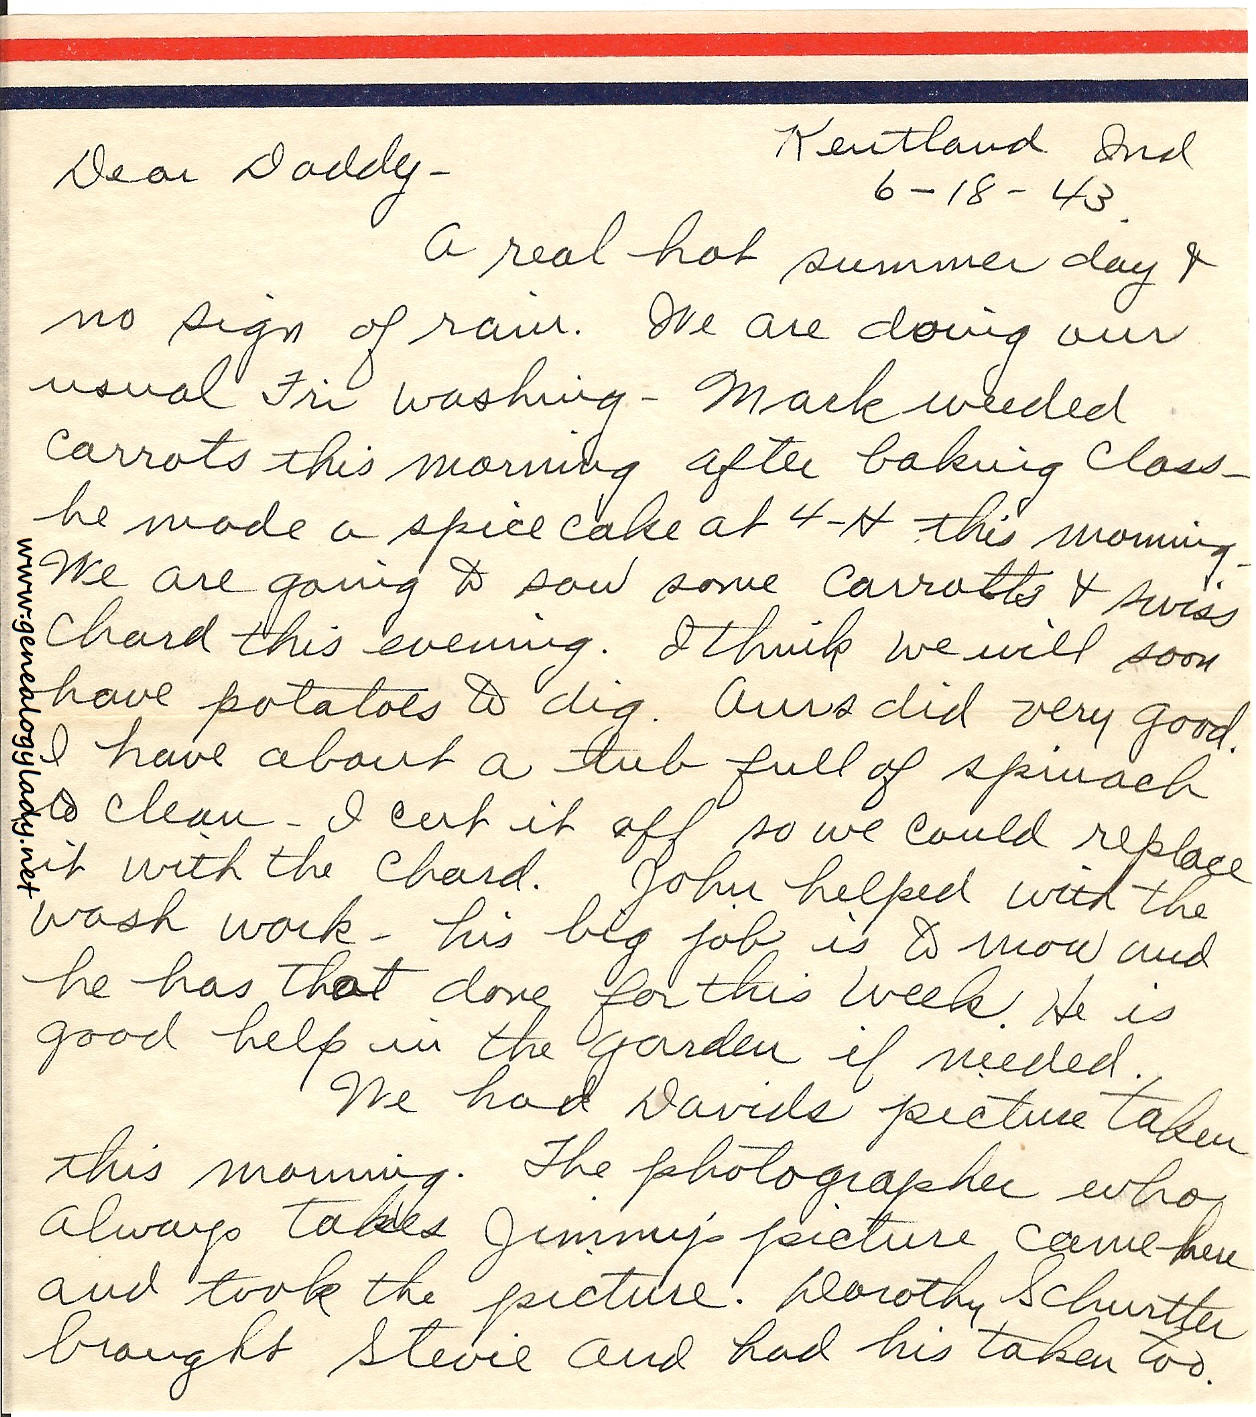 Kentland Ind
Dear Daddy-
6-18-43.
A real hot summer day &
no sign of rain. We are doing our
usual Fri washing - Mark weeded
carrots this morning after baking class-
he made a spice cake at 4-H this morning-
We are going to sow some carrotts & swiss
chard this evening. I think we will soon
have potatoes to dig. Ours did very good.
I have about a tub full of spinach
to clean - I cut it off so we could replace
it with the chard. John helped with the
wash work - his big job is to mow and
he has that done for this week. He is
good help in the garden if needed.
We had Davids picture taken
this morning. The photographer who
always takes Jimmy's picture came here
and took the picture. Dorothy Schurtter
brought Stevie and had his taken too.
www.genealogylady.net